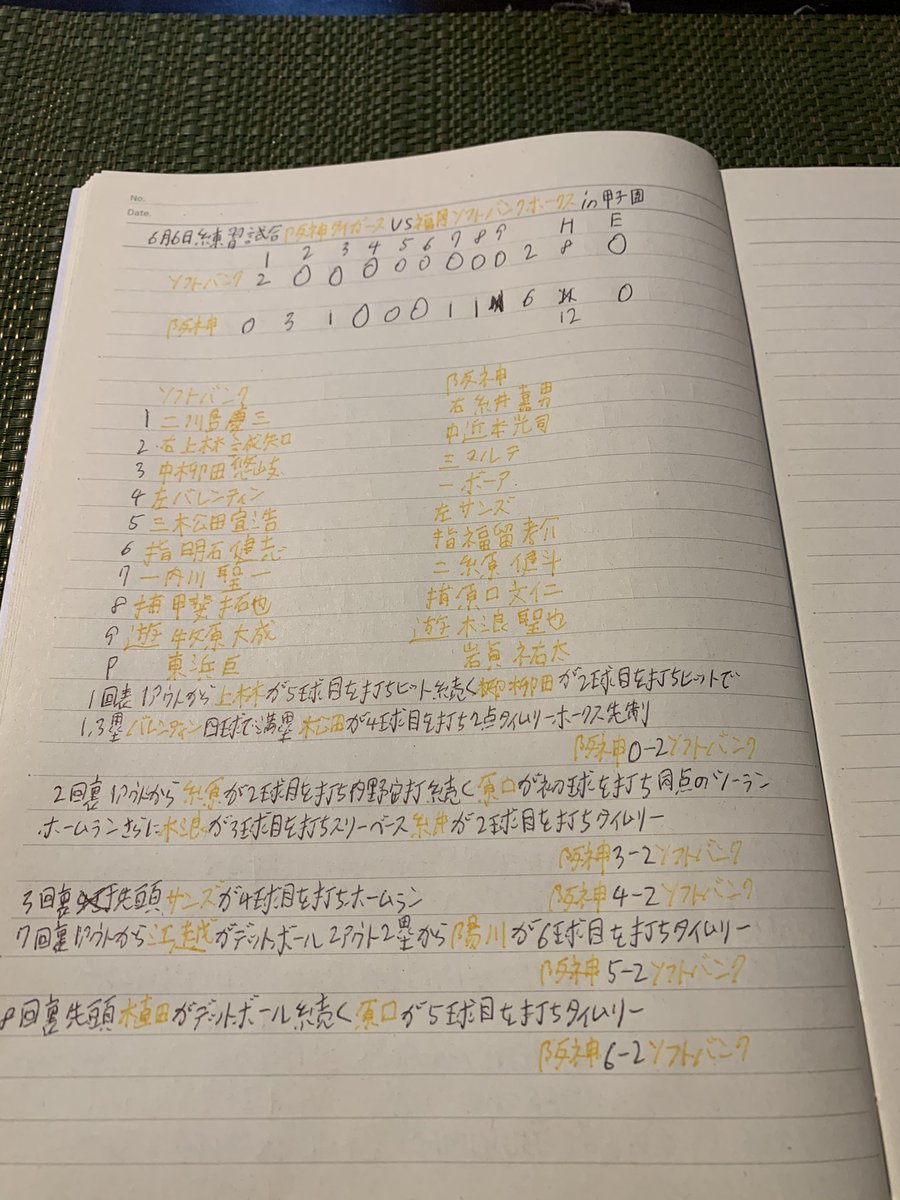 No.
Date.
6月6日練習試合阪神タイガースVS福岡ソフトバンクホークスin甲子園
1 2 3 4 5 6 7 8 9 H E
ソフトバンク 2 0 0 0 0 0 0 0 0 2 8 0
阪神 0 3 1 0 0 0 1 1 6 12 0
ソフトバンク 阪神
1 二川島慶三 右糸井嘉男
2 右上林誠知 中近本光司
3 中柳田悠岐 三マルテ
4 左バレンティン 一ボーア
5 三松田宣浩 左サンズ
6 指明石健志 指福留孝介
7 一内川聖一 二糸原健斗
8 捕甲斐拓也 捕原口文仁
9 遊牧原大成 遊木浪聖也
P 東浜巨 岩貞祐太
1回表1アウトから上林が5球目を打ちヒット続く柳田が2球目を打ちヒットで
1,3塁バレンティン四球で満塁松田が4球目を打ち2点タイムリーホークス先制
阪神0-2ソフトバンク
2回裏1アウトから糸原が2球目を打ち内野安打続く原口が初球を打ち同点のツーラン
ホームランさらに木浪が3球目を打ちスリーベース糸井が2球目を打ちタイムリー
阪神3-2ソフトバンク
3回裏先頭サンズが4球目を打ちホームラン 阪神4-2ソフトバンク
7回裏1アウトから江越がデットボール2アウト2塁から陽川が6球目を打ちタイムリー
阪神5-2ソフトバンク
8回裏先頭植田がデットボール続く原口が5球目を打ちタイムリー
阪神6-2ソフトバンク